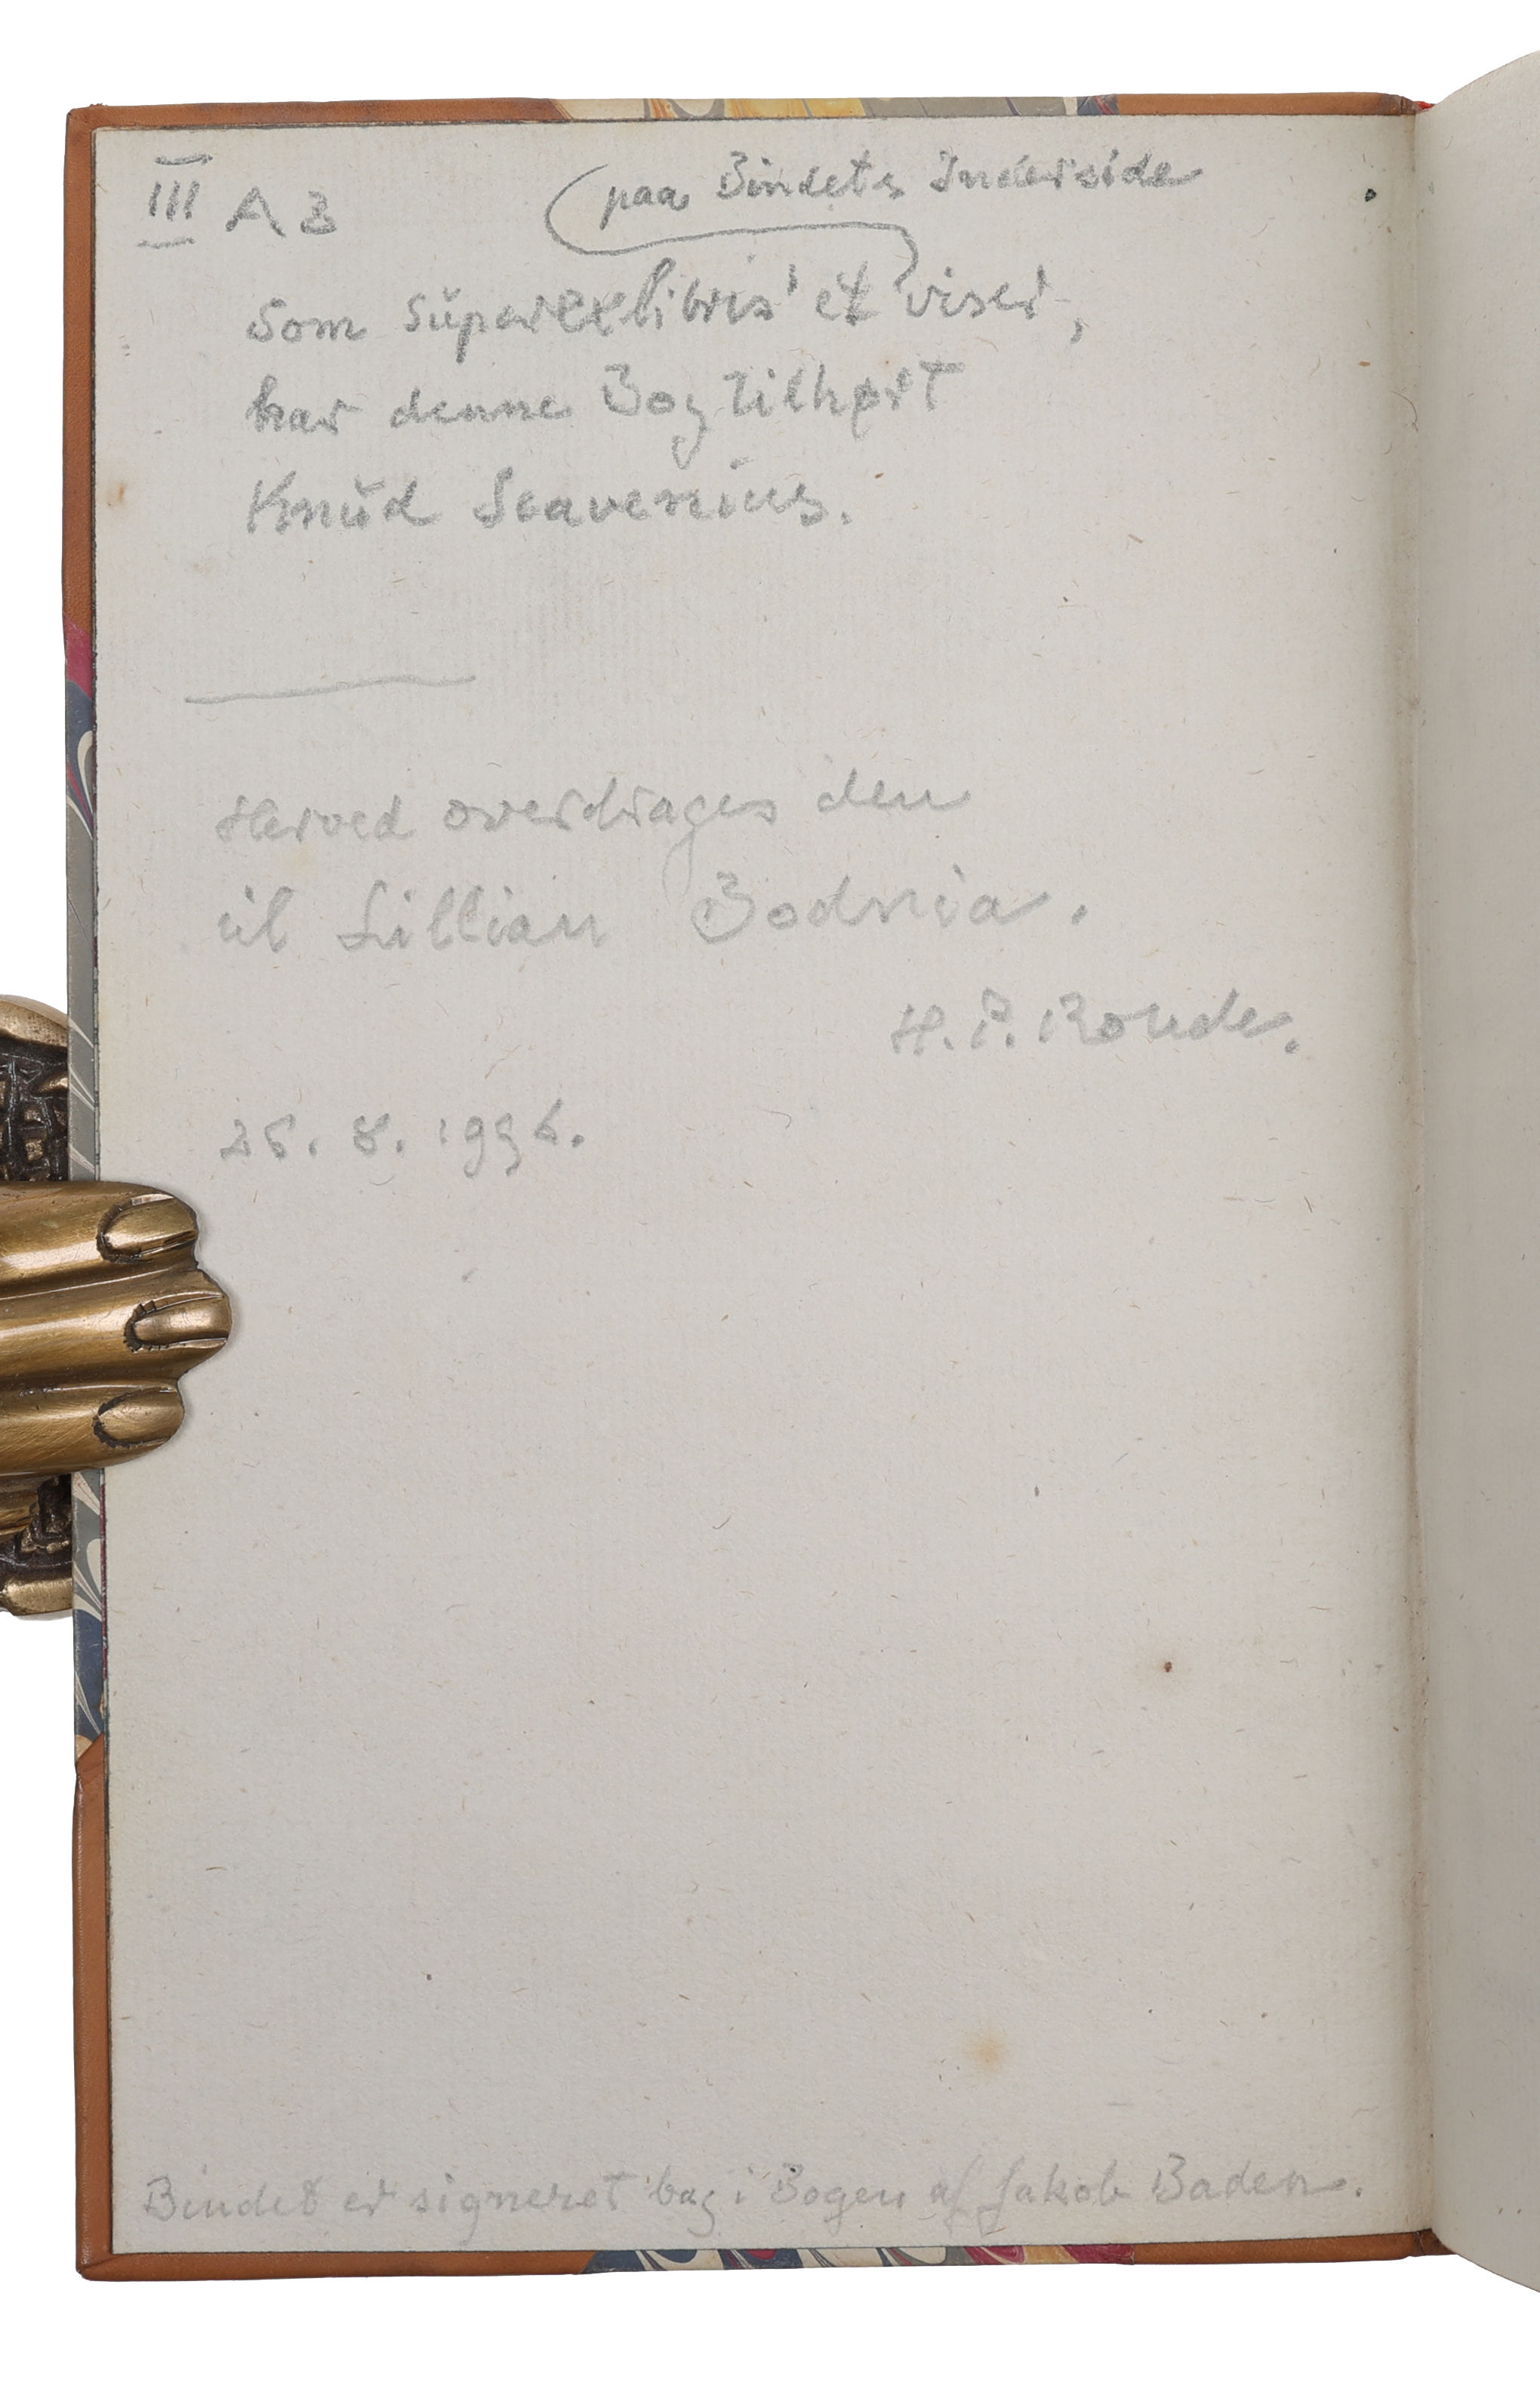 III A 3
paa Bindets Inderside
Som Superexlibris'et viser,
har denne Bog tilhørt
Knud Scavenius.
Herved overdrages den
til Lillian Bodnia.
H. P. Rohde.
Bindet er signeret bag i Bogen af Jakob Baden.